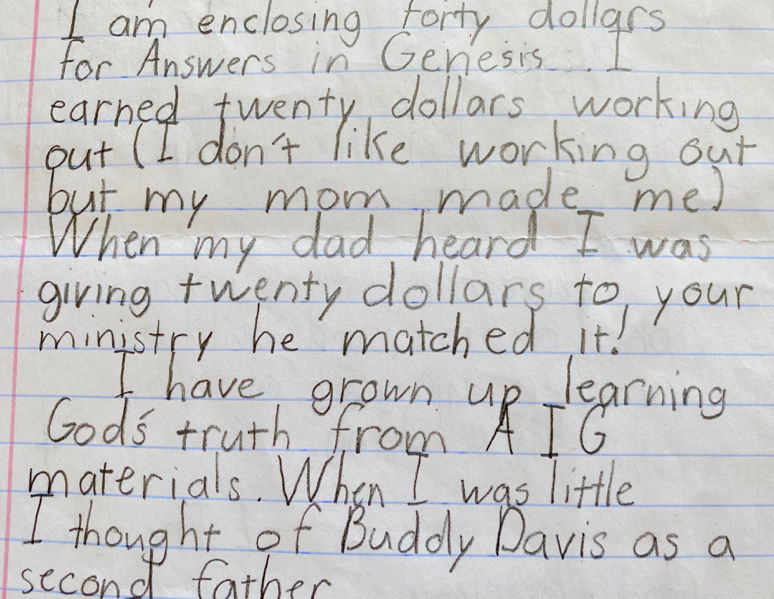 I am enclosing forty dollars
for Answers in Genesis. I
earned twenty dollars working
out (I don't like working out
but my mom made me)
When my dad heard I was
giving twenty dollars to your
ministry he matched it!
I have grown up learning
God's truth from A I G
materials. When I was little
I thought of Buddy Davis as a
second father